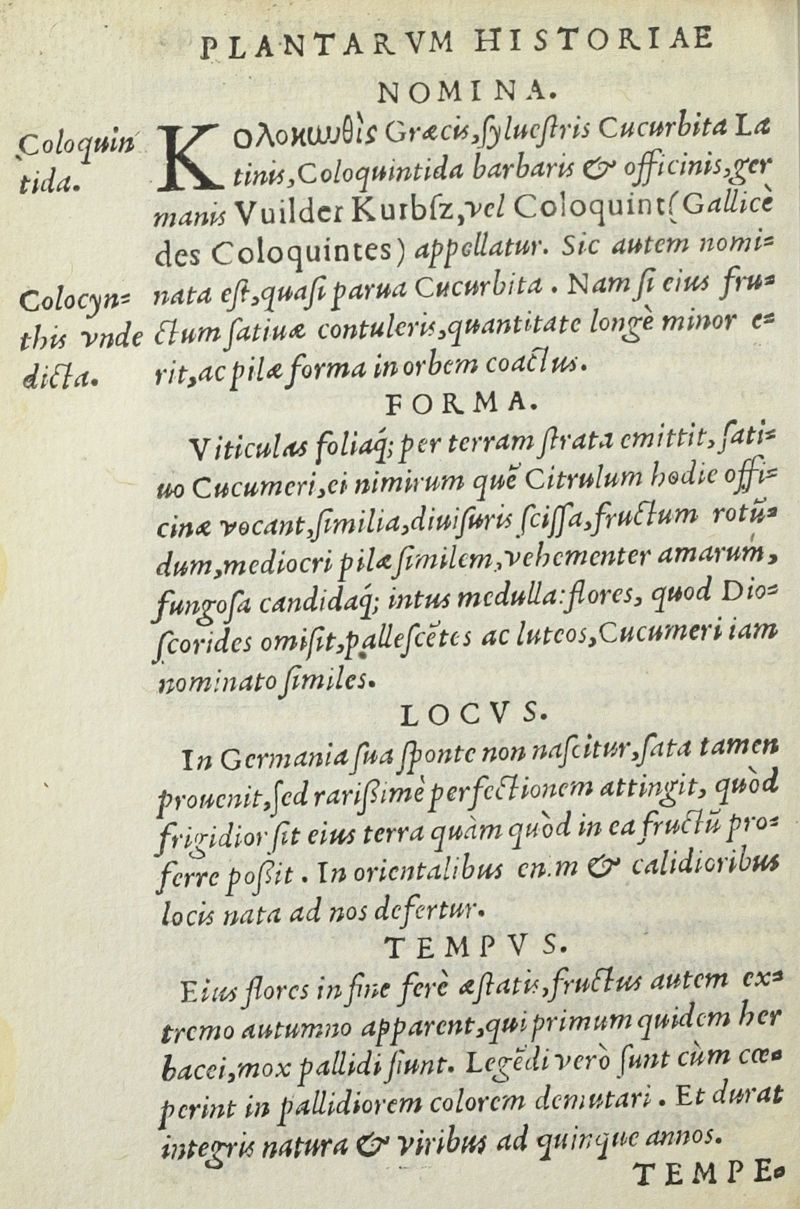 PLANTARVM HISTORIAE
NOMINA.
Coloquin
tida.
Κολοκωυθὶς Græcis, ſylueſtris Cucurbita La
tinis, Coloquintida barbaris & officinis, ger
manis Vuilder Kurbſz, vel Coloquint (Gallicè
des Coloquintes) appellatur. Sic autem nomi=
Colocyn=
this vnde
dicta.
nata eſt, quaſi parua Cucurbita. Nam ſi eius fru=
ctum ſatiuæ contuleris, quantitate longè minor e=
rit, ac pilæ forma in orbem coactus.
FORMA.
Viticulas foliaq́; per terram ſtrata emittit, ſati=
uo Cucumeri, ei nimirum quẽ Citrulum hodie offi=
cinæ vocant, ſimilia, diuiſuris ſciſſa, fructum rotũ=
dum, mediocri pilæ ſimilem, vehementer amarum,
fungoſa candidaq́; intus medulla: flores, quod Dio=
ſcorides omiſit, palleſcẽtes ac luteos, Cucumeri iam
nominato ſimiles.
LOCVS.
In Germania ſua ſponte non naſcitur, ſata tamen
prouenit, ſed rariſſimè perfectionem attingit, quòd
frigidior ſit eius terra quàm quòd in ea fructũ pro=
ferre poſſit. In orientalibus enim & calidioribus
locis nata ad nos defertur.
TEMPVS.
Eius flores in fine ferè æſtatis, fructus autem ex=
tremo autumno apparent, qui primum quidem her
bacei, mox pallidi fiunt. Legẽdi verò ſunt cùm cœ=
perint in pallidiorem colorem demutari. Et durat
integris natura & viribus ad quinque annos.
TEMPE=